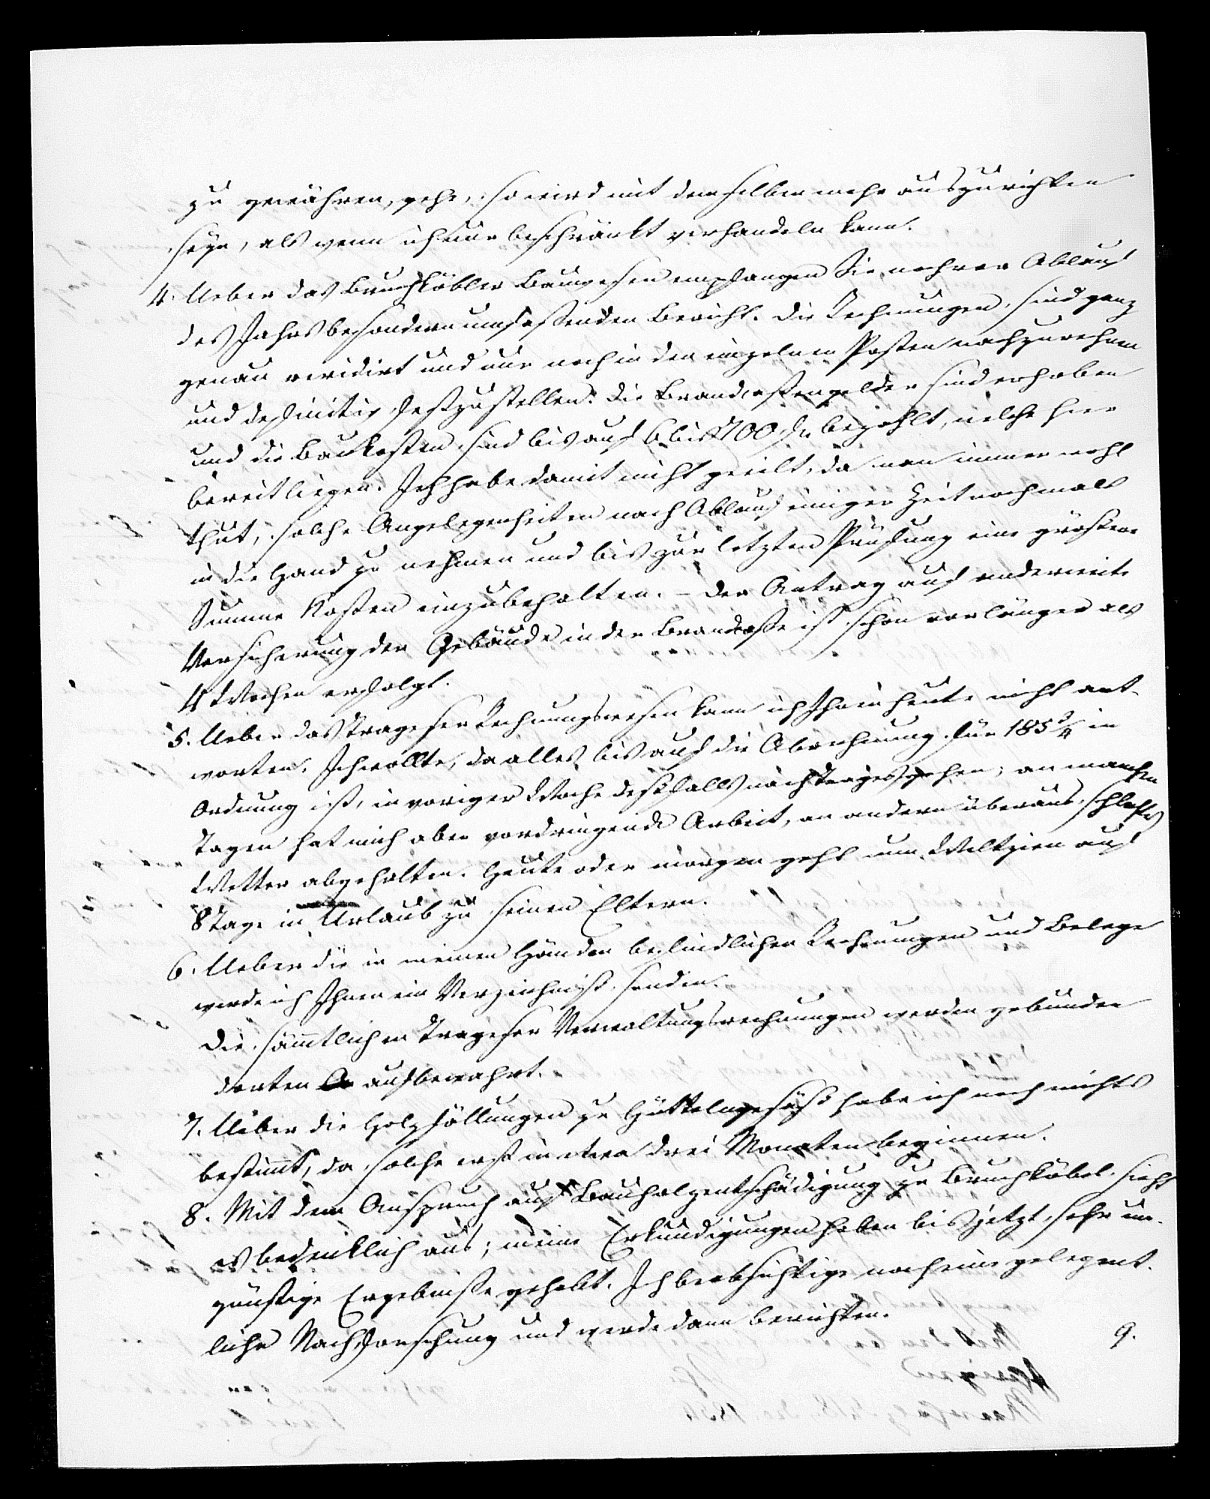 zu gewähren, gehe, so wird mit demselben mehr auszurichten
seyn, als wenn ich nur beschränkt verhandeln kann.
4. Ueber das Bruchköbler Bauwesen empfangen Sie noch vor Ablauf
des Jahrs besondern umfaßenden Bericht. Die Rechnungen sind ganz
genau revidirt und nur noch in den einzelnen Posten nachzurechnen
und definitiv festzustellen. Die Brandcaßengelder sind erhoben
und die Baukosten sind bis auf 6 bis 700 fl. bezahlt, welche hier
bereit liegen. Ich habe damit nicht geeilt, da man immer wohl
thut, solche Angelegenheiten nach Ablauf einiger Zeit nochmals
in die Hand zu nehmen und bis zur letzten Prüfung eine größere
Summe Kosten einzubehalten. – Der Antrag auf anderweite
Versicherung der Gebäude in der Brandcaße ist schon vor länger als
4 Wochen erfolgt.
5. Ueber das Trageser Rechnungswesen kann ich Ihnen heute nicht ant-
worten. Ich wollte, da alles bis auf die Abrechnung für 185¾ in
Ordnung ist, in voriger Woche deßfalls nach Trages gehen; an manchen
Tagen hat mich aber vordringende Arbeit, an andern überaus schlechtes
Wetter abgehalten. Heute oder morgen geht nun Weltzien auf
8 Tage in Urlaub zu seinen Eltern.
6. Ueber die in meinen Händen befindlichen Rechnungen und Belege
werde ich Ihnen ein Verzeichniß senden.
Die sämmtlichen Trageser Verwaltungsrechnungen werden gebunden
dorten aufbewahrt.
7. Ueber die Holzfällungen zu Hüttelngesäß habe ich noch nichts
bestimmt, da solche erst in etwa drei Monaten beginnen.
8. Mit dem Anspruch auf Bauholzentschädigung zu Bruchköbel sieht
es bedenklich aus; meine Erkundigungen haben bis jetzt sehr un-
günstige Ergebniße gehabt. Ich beabsichtige noch eine gelegent-
liche Nachforschung und werde dann berichten.
9.